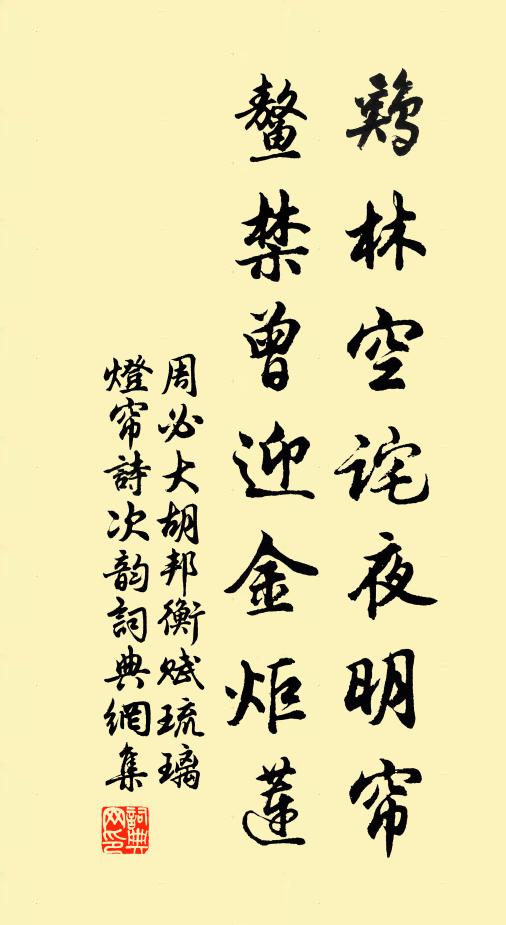 鷄林空詫夜明帘
鰲禁曾迎金炬蓮
周必大胡邦衡赋琉璃
燈帘詩次韵詞典網集
詞典網印